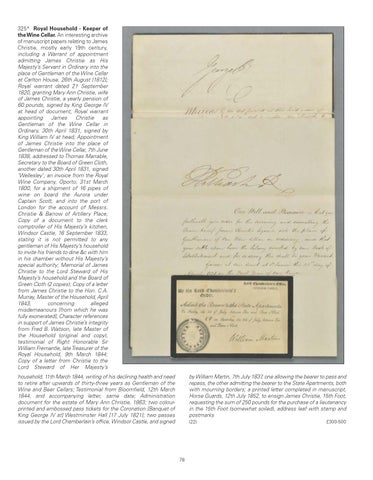 325* Royal Household - Keeper of
the Wine Cellar. An interesting archive
of manuscript papers relating to James
Christie, mostly early 19th century,
including a Warrant of appointment
admitting James Christie as His
Majesty's Servant in Ordinary into the
place of Gentleman of the Wine Cellar
at Carlton House, 26th August [1812];
Royal warrant dated 21 September
1820, granting Mary Ann Christie, wife
of James Christie, a yearly pension of
60 pounds, signed by King George IV
at head of document; Royal warrant
appointing James Christie as
Gentleman of the Wine Cellar in
Ordinary, 30th April 1831, signed by
King William IV at head; Appointment
of James Christie into the place of
Gentleman of the Wine Cellar, 7th June
1838, addressed to Thomas Marrable,
Secretary to the Board of Green Cloth,
another dated 30th April 1831, signed
'Wellesley'; an invoice from the Royal
Wine Company, Oporto, 31st March
1800, for a shipment of 16 pipes of
wine on board the Aurora under
Captain Scott, and into the port of
London for the account of Messrs.
Christie & Barrow of Artillery Place;
Copy of a document to the clerk
comptroller of His Majesty's kitchen,
Windsor Castle, 16 September 1833,
stating it is not permitted to any
gentleman of His Majesty's household
to invite his friends to dine &c with him
in his chamber without His Majesty's
special authority; Memorial of James
Christie to the Lord Steward of His
Majesty's household and the Board of
Green Cloth (2 copies); Copy of a letter
from James Christie to the Hon. C.A.
Murray, Master of the Household, April
1843, concerning alleged
misdemeanours (from which he was
fully exonerated); Character references
in support of James Christie's integrity
from Fred B. Watson, late Master of
the Household (original and copy);
testimonial of Right Honorable Sir
William Fremantle, late Treasurer of the
Royal Household, 9th March 1844;
Copy of a letter from Christie to the
Lord Steward of Her Majesty's
household, 11th March 1844, writing of his declining health and need
to retire after upwards of thirty-three years as Gentleman of the
Wine and Beer Cellars; Testimonial from Bloomfield, 12th March
1844, and accompanying letter, same date; Administration
document for the estate of Mary Ann Christie, 1863; two colour
printed and embossed pass tickets for the Coronation [Banquet of
King George IV at] Westminster Hall [17 July 1821]; two passes
issued by the Lord Chamberlain's office, Windsor Castle, and signed
by William Martin, 7th July 1837, one allowing the bearer to pass and
repass, the other admitting the bearer to the State Apartments, both
with mourning borders; a printed letter completed in manuscript,
Horse Guards, 12th July 1852, to ensign James Christie, 15th Foot,
requesting the sum of 250 pounds for the purchase of a lieutenancy
in the 15th Foot (somewhat soiled), address leaf with stamp and
postmarks
(22) £300-500
George R
William R
Our Will and Pleasure is that you
Lord Chamberlain's Office,
By the Lord Chamberlain's
Order.
Admit the Bearer to the State Apartments
William Martin
78